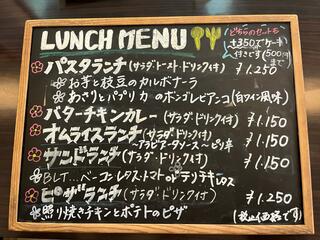 LUNCH MENU
どちらのセットも
+350でケーキ
付きです(500円まで)
パスタランチ(サラダ・トースト・ドリンク付) ¥1.250
お芋と枝豆のカルボナーラ
あさりとパプリカのボンゴレビアンコ(白ワイン風味)
バターチキンカレー(サラダ・ドリンク付) ¥1.150
オムライスランチ(サラダ・ドリンク付) ¥1.150
〜アラビアータソース〜ピリ辛
サンドランチ(サラダ・ドリンク付) ¥1.150
BLT…ベーコンレタストマトorテリチキレタス
ピザランチ(サラダ・ドリンク付) ¥1.250
照り焼きチキンとポテトのピザ (税込価格です)